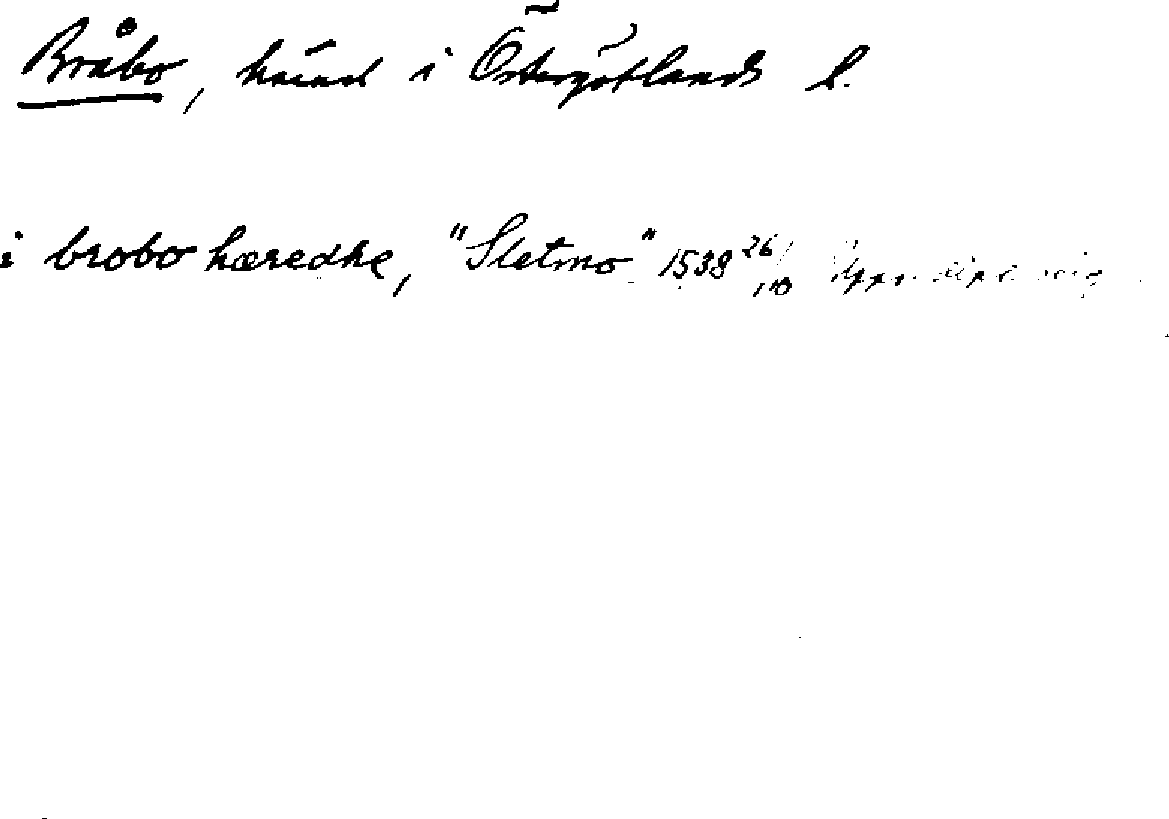 Bråbo, härad i Östergötlands l.
i brobo hæredhe, "Sletmo" 1538 26/10